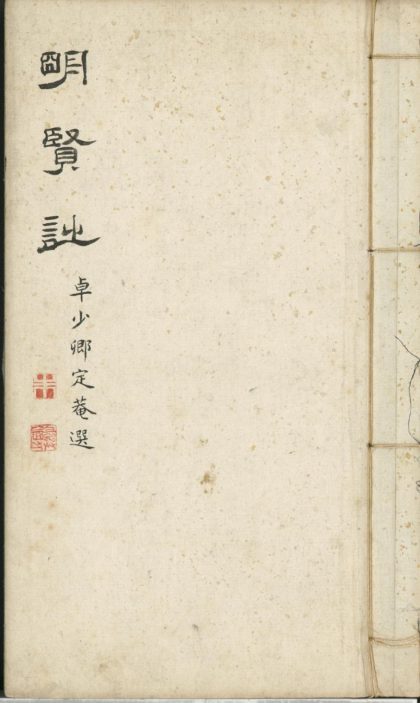 明賢詩
卓少卿定菴選